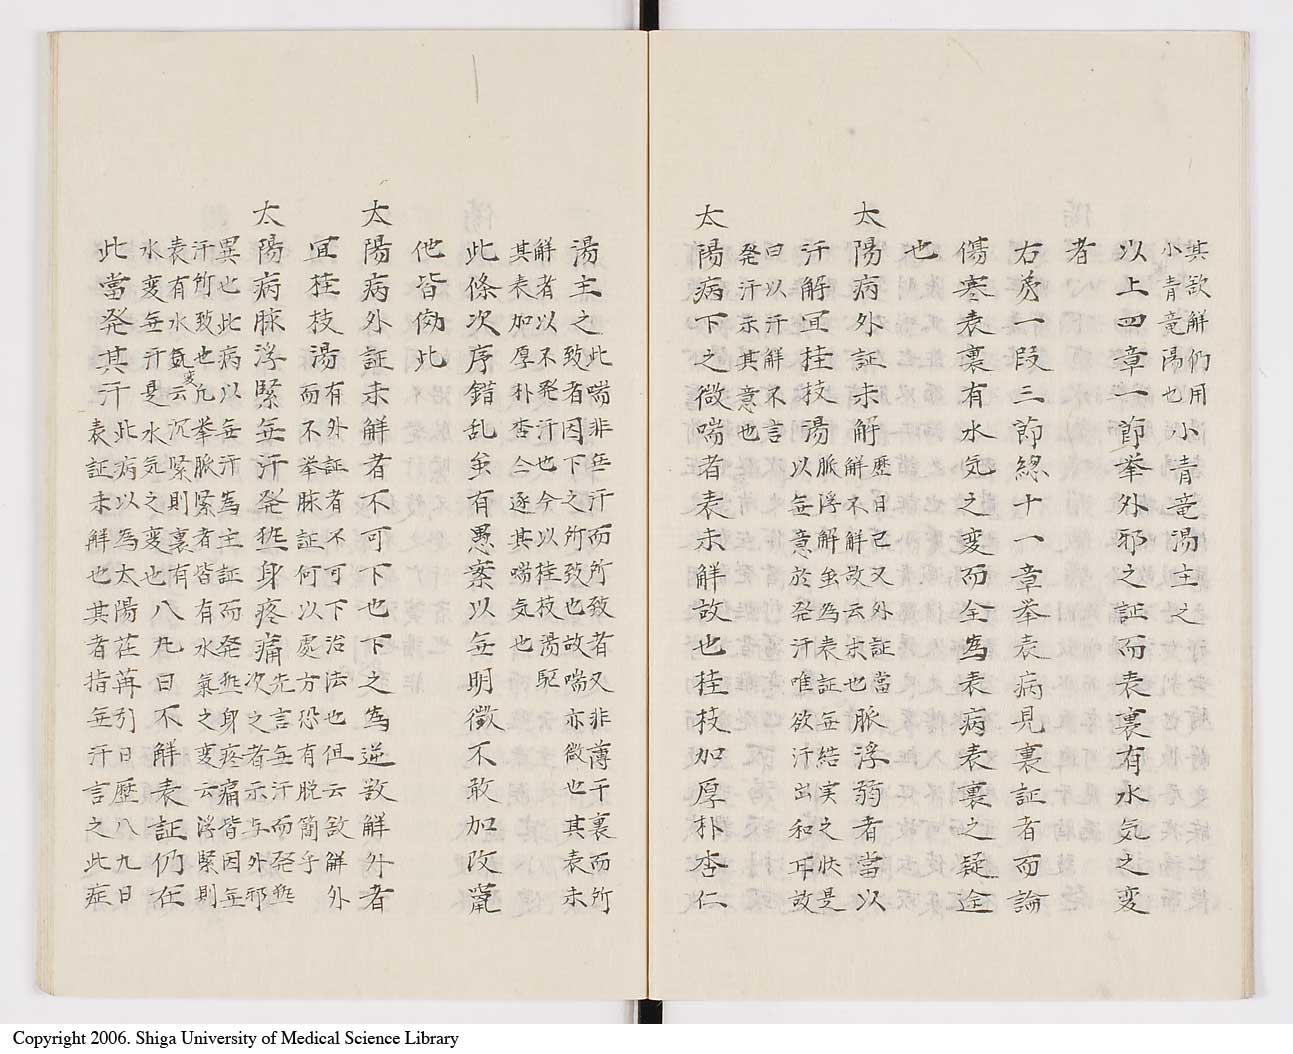 其欲解們用
小青竜湯也
小青竜湯主之
以上四章一節挙外邪之証而表裏有水気之変
者
右第一段三節総十一章挙表病見裏証者而論
傷寒表裏有水気之変而全為表病表裏之疑途
也
太陽病外証未解
歴日已又外証當
解不解故云未也
脈浮弱者當以
汗解宜桂枝湯
脈浮解虽為表証每結実之状是
以每意於発汗唯欲汗出和耳故
曰以汗解不言
発汗示其意也
太陽病下之微喘者表未解故也桂枝加厚朴杏仁
湯主之
此喘非無汗而所致者又非薄干裏而所
致者因下之所致也故喘亦微也其表未
解者以不発汗也今以桂枝湯駆
其表加厚朴杏仁逐其喘気也
此條次序錯乱虽有愚案以每明徴不敢加改竄
他皆倣此
太陽病外証未解者不可下也下之為逆欲解外者
宜桂枝湯
有外証者不可下治法也但云欲解外
而不挙脉証何以處方恐有脱簡乎
太陽病脉浮緊每汗発熱身疼痛
先言每汗而発熱
次之者示与外邪
異也此病以每汗為主証而発熱身疼痛皆因每
汗所致也凡挙脈緊者皆有水氣之変云浮緊則
表有水気変云沉緊則裏有
水変每汗是水気之変也
八九日不解表証仍在
此病以為太陽荏苒引日歴八九日
此當発其汗
表証未解也其者指每汗言之此症
Copyright 2006. Shiga University of Medical Science Library